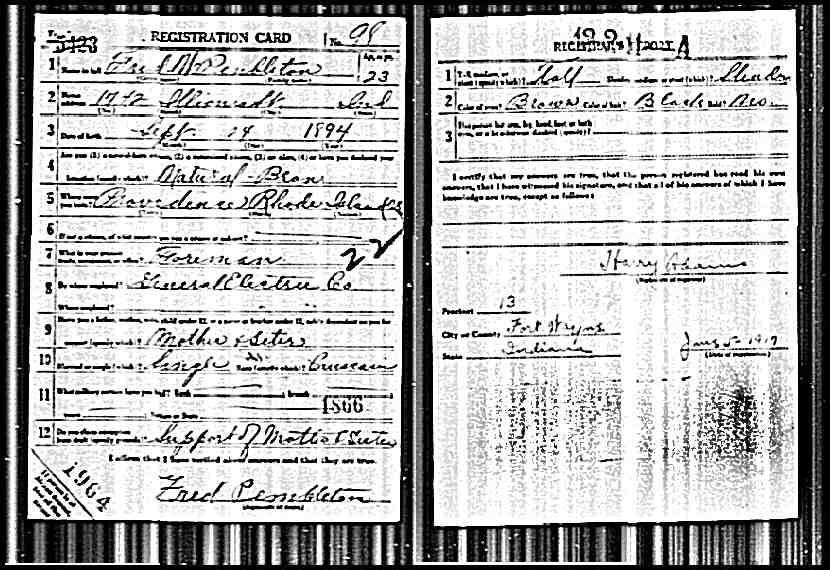 3423
REGISTRATION CARD No. 98
1 Name in full Fred Pembleton Age, in yrs. 23
2 Home address Ind
3 Date of birth Sept 1894
4 Are you (1) a natural-born citizen, (2) a naturalized citizen, (3) an alien, (4) or have you declared your intention (specify which)? Natural-Born
5 Where were you born? Providence Rhode Island
6 If not a citizen, of what country are you a citizen or subject?
7 What is your present trade, occupation, or office? Foreman 22
8 By whom employed? General Electric Co
Where employed?
9 Have you a father, mother, wife, child under 12, or a sister or brother under 12, solely dependent on you for
support (specify which)? Mother & Sister
10 Married or single (which)? Single Race (specify which)?
11 What military service have you had? Rank branch
1866
years Nation or State
12 Do you claim exemption from draft (specify grounds)? Support of Mother & Sister
I affirm that I have verified above answers and that they are true.
1964
Fred Pembleton
(Signature or mark)
REGISTRAR'S REPORT A
1 Tall, medium, or short (specify which)? Tall Slender, medium, or stout (which)? Slender
2 Color of eyes? Brown Color of hair? Black Bald?
3 Has person lost arm, leg, hand, foot, or both
eyes, or is he otherwise disabled (specify)?
I certify that my answers are true, that the person registered has read his own
answers, that I have witnessed his signature, and that all of his answers of which I have
knowledge are true, except as follows:
Harry Adams
(Signature of registrar)
Precinct 13
City or County Fort Wayne
State Indiana June 5-1917
(Date of registration)